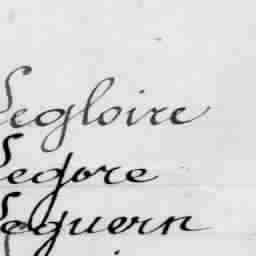 Legloire
Legore
Leguern